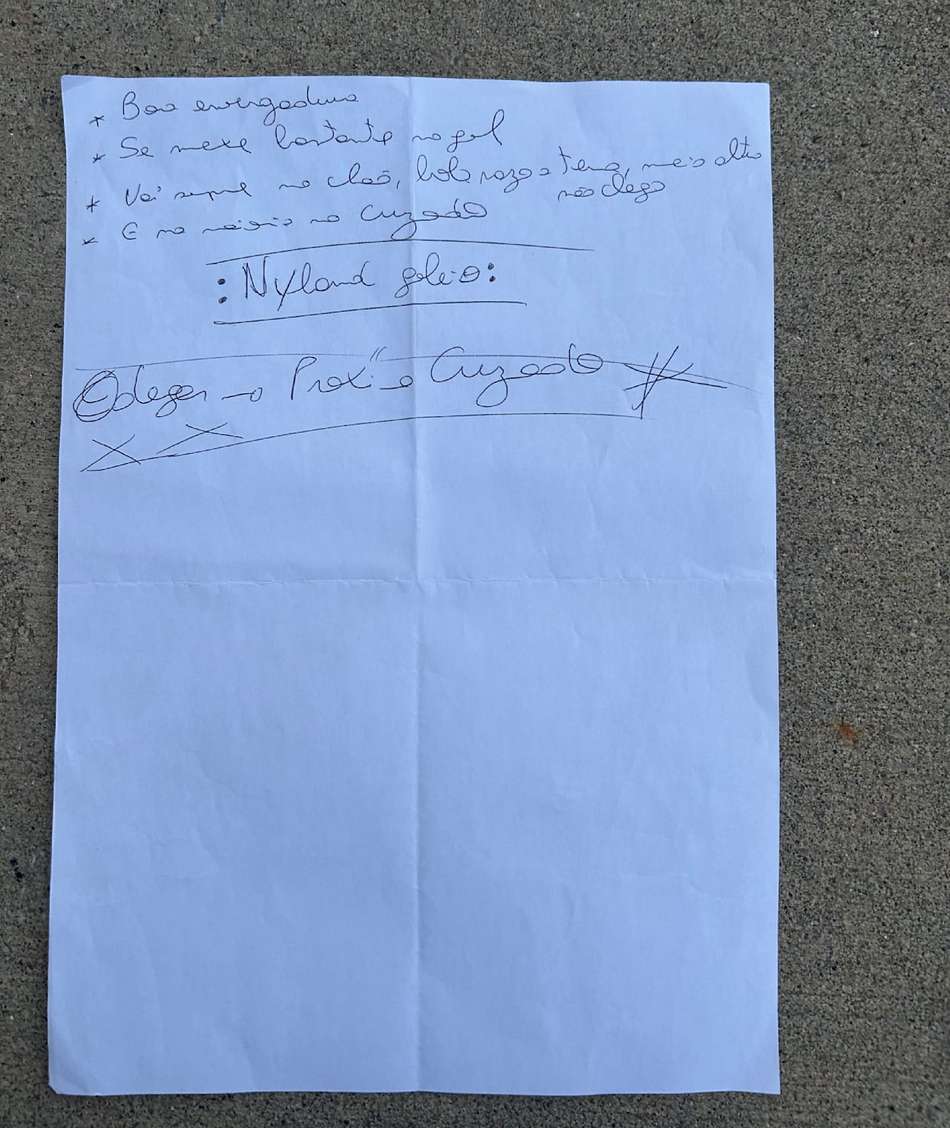 * Boa envergadura
* Se mexe bastante no gol
* Vai sempre no chão, bola razo a tena, meio alto
não chega
* E na maioria no Cruzado
: Nyland goleiro :
Odegar Proximo Cruzado